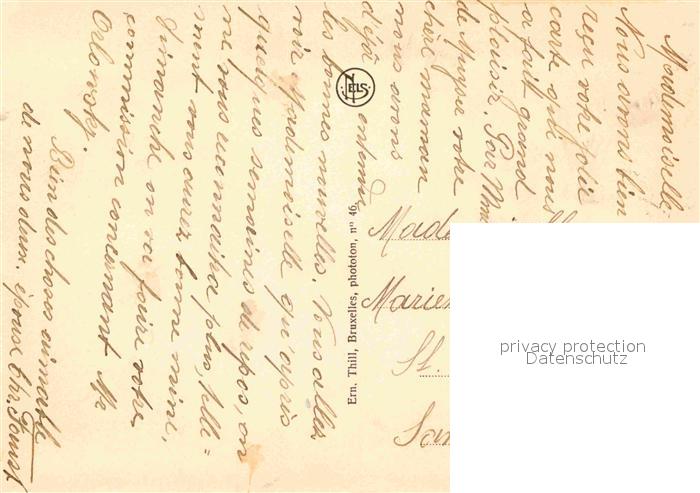 Mademoiselle,
Nous avons bien
reçu votre jolie
carte qui nous
a fait grand
plaisir. Par Mme
de Mpyer votre
chère maman
nous avons
déjà entendu
les bonnes nouvelles. Vous allez
voir Mademoiselle qu'après
quelques semaines de repos, on
ne vous reconnaîtra plus, telle=
ment vous aurez bonne mine,
Dimanche on va faire votre
commission concernant Mr
Orlonsky.
Bien des choses aimable
de nous deux. époux Chr. Faust
ELS
Ern. Thill, Bruxelles, phototon, nº 46.
Made
Marien
St.
San
privacy protection
Datenschutz